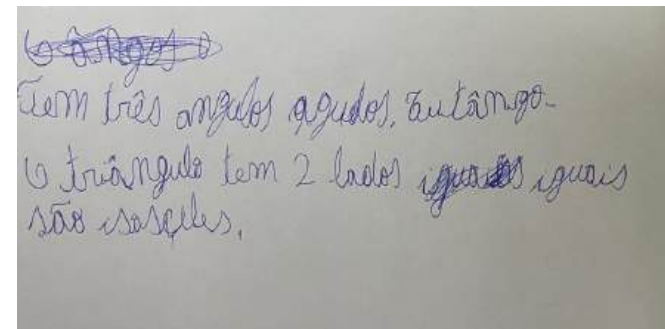 Tem três angulos agudos.
O triângulo tem 2 lados iguais
são isosçeles.